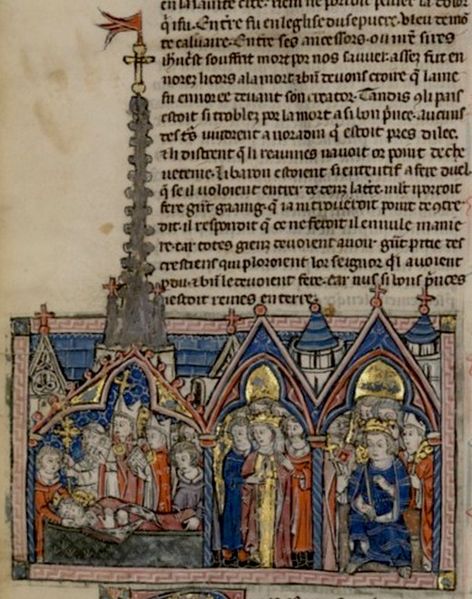 en la sainte cite. rien ne porroit penser la dolor
q̃ ifu. fu en leglise du sepucre. leu de
te caluaire. Entre ses ancessors. ou sires
souffrit mort por nos sauuer. assez fut en
norez li cors a la mort ⁊ bñ deuons croire q̃ lame
fu ennoree deuant son creator. Tandis q̃ li pais
estoit si troblez por la mort a si bon p̃nce. aucuns
des vindrent a noradin q̃ estoit pres dilec.
⁊ li distrent q̃ li reaumes nauoit or point de che
uetenie. li baron estoient si ententif a fere duel.
q̃ se il voloient entrer de cenz la mlt i porroit
fere grãt gaaing. q̃ ia ni troueroit point de cõtre
dit. il respondit q̃ ce ne feroit il en nule manie
re. car totes genz deuoient auoir grãt pitie des
crestiens qui ploroient lor seignor q̃l auoient
pdu. ⁊ bñ le deuoient fere. car nus si bons p̃nces
nestoit remes en terre.